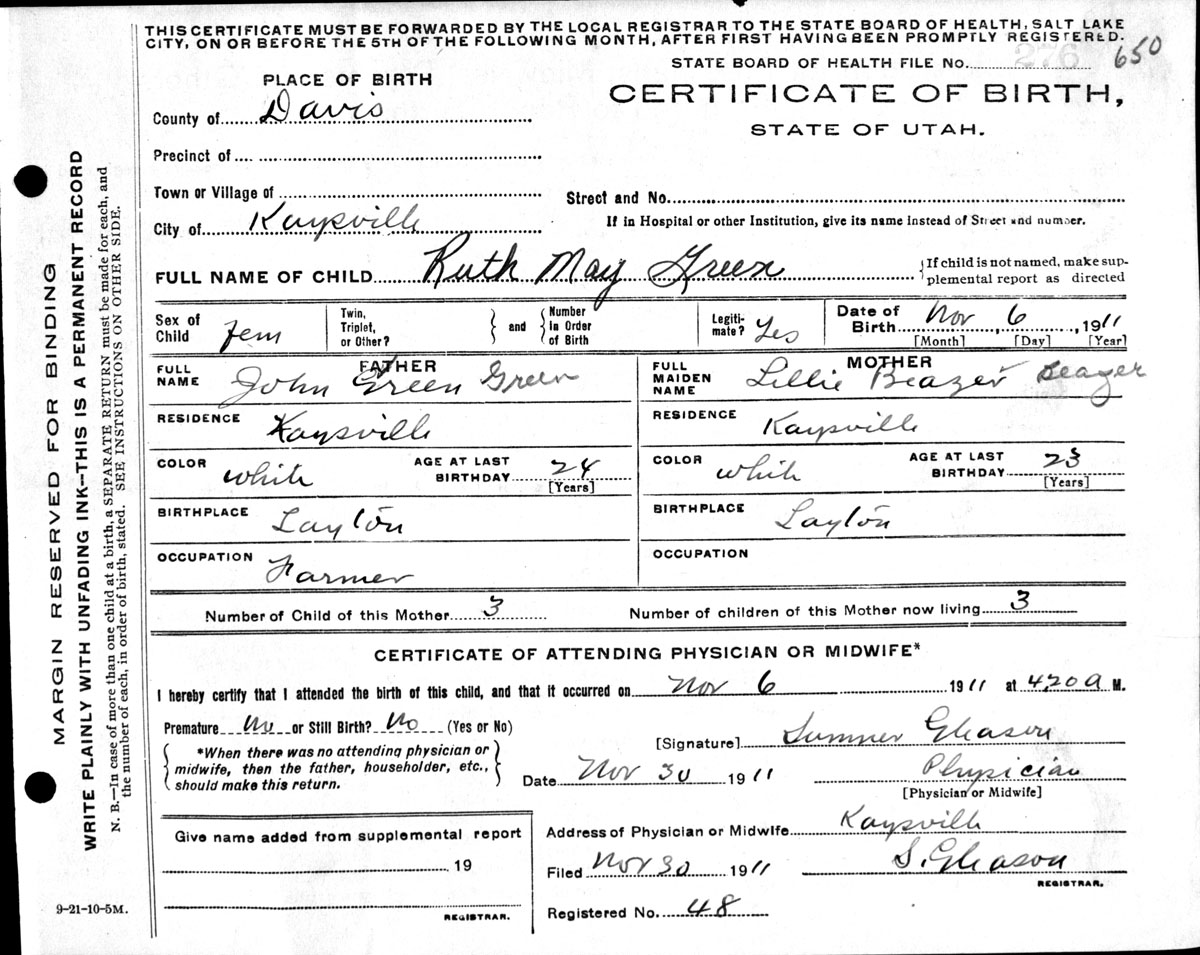 THIS CERTIFICATE MUST BE FORWARDED BY THE LOCAL REGISTRAR TO THE STATE BOARD OF HEALTH, SALT LAKE
CITY, ON OR BEFORE THE 5TH OF THE FOLLOWING MONTH, AFTER FIRST HAVING BEEN PROMPTLY REGISTERED.
STATE BOARD OF HEALTH FILE NO. 276 650
PLACE OF BIRTH
CERTIFICATE OF BIRTH,
STATE OF UTAH.
County of Davis
Precinct of
Town or Village of
Street and No.
City of Kaysville
If in Hospital or other Institution, give its name instead of Street and number.
FULL NAME OF CHILD Ruth May Green
{If child is not named, make sup-
plemental report as directed
Sex of Child Fem
Twin, Triplet, or Other?
} and {
Number in Order of Birth
Legiti-mate? Yes
Date of Birth Nov 6, 1911
[Month] [Day] [Year]
FATHER
MOTHER
FULL NAME John Green Green
FULL MAIDEN NAME Lillie Beazer Beazer
RESIDENCE Kaysville
RESIDENCE Kaysville
COLOR White
AGE AT LAST BIRTHDAY 24
[Years]
COLOR White
AGE AT LAST BIRTHDAY 23
[Years]
BIRTHPLACE Layton
BIRTHPLACE Layton
OCCUPATION Farmer
OCCUPATION
Number of Child of this Mother 3
Number of children of this Mother now living 3
CERTIFICATE OF ATTENDING PHYSICIAN OR MIDWIFE*
I hereby certify that I attended the birth of this child, and that it occurred on Nov 6 1911 at 4,20 a M.
Premature No or Still Birth? No (Yes or No)
{ *When there was no attending physician or
midwife, then the father, householder, etc.,
should make this return. }
[Signature] Sumner Gleason
Date Nov 30 1911 Physician
[Physician or Midwife]
Give name added from supplemental report
19
REGISTRAR.
Address of Physician or Midwife Kaysville
Filed Nov 30 1911 S. Gleason
REGISTRAR.
Registered No. 48
9-21-10-5M.
MARGIN RESERVED FOR BINDING
WRITE PLAINLY WITH UNFADING INK—THIS IS A PERMANENT RECORD
N. B.—In case of more than one child at a birth, a SEPARATE RETURN must be made for each, and
the number of each, in order of birth, stated. SEE INSTRUCTIONS ON OTHER SIDE.